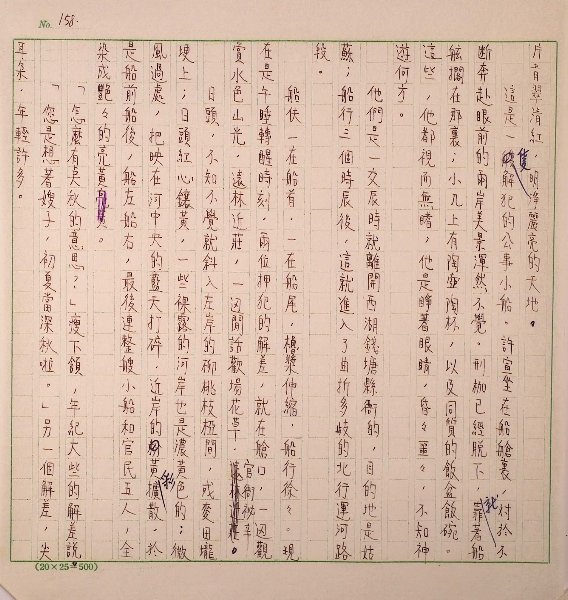 No. 158
片青翠清紅,明淨麗亮的天地。
這是一隻解犯的公事小船。許宣坐在船艙裏,付於不
斷奔赴眼前的兩岸美景渾然不覺。刑枷已經脫下,就靠著船
舷擱在那裏;小几上有陶壺陶杯,以及同質的飯盆飯碗。
這些,他都視而無睹,他是睜著眼睛,昏々噩々,不知神
遊何方。
他們是一交辰時就離開西湖錢塘縣衙的,目的地是姑
蘇;船行三個時辰後,這就進入了曲折多岐的北行運河路
段。
船伕一在船首,一在船尾,櫓槳伸縮,船行徐々。現
在是午睡轉醒時刻,兩位押犯的解差,就在艙口,一迴觀
賞水色山光,遠林近莊,一迴閒話歡場花草,官衙秘辛。
日頭,不知不覺就斜入左岸的柳桃枝椏間,或麥田壠
埂上;日頭紅心鑲黃,一些裸露的河岸也是濃黃色的;微
風過處,把映在河中央的藍天打碎,近岸的彩黃擴散,於
是船前船後,船左船右,最後連整艘小船和官民五人,全
染成艷々的亮黃。
「怎麼有吳秋的意思?」瘦下頷,年紀大些的解差說。
「您是想著嫂子,初夏當深秋啦。」另一個解差,尖
耳朵,年輕許多。
(20×25=500)